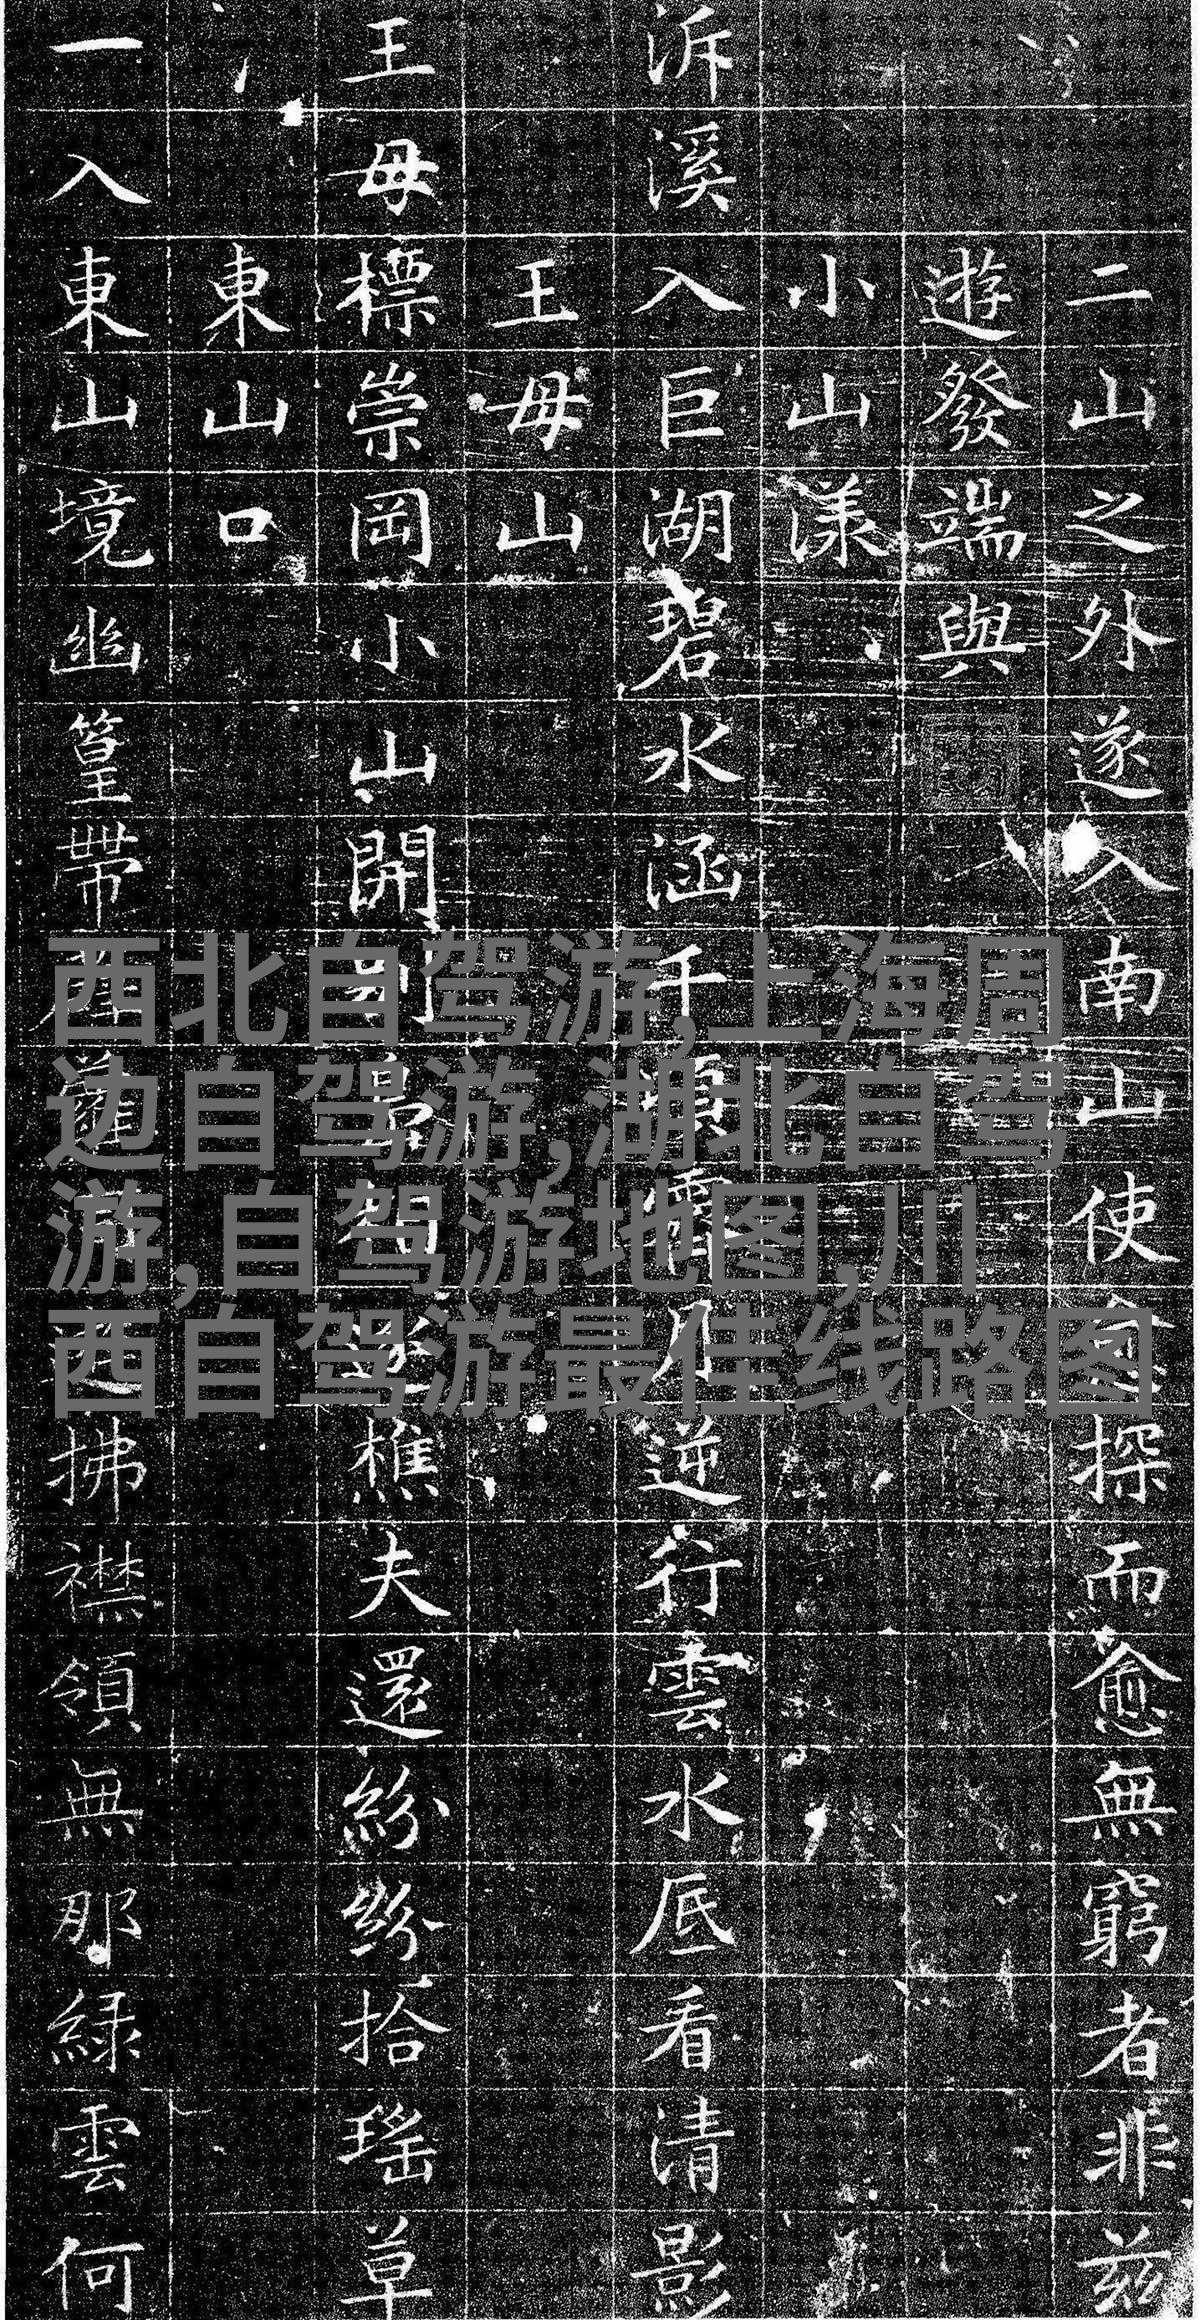 二山之外遂入南山使愈探而愈無窮者非茲
遊發端與
小山漾
泝溪入巨湖碧水涵千頃霽月逆行雲水底看清影
王母山
王母標崇岡小山開別島樵夫還紛紛拾瑤草
東山口
一入東山境幽篁帶拂襟領無那綠雲何
西北自驾游,上海周
边自驾游,湖北自驾
游,自驾游地图,川
西自驾游最佳线路图